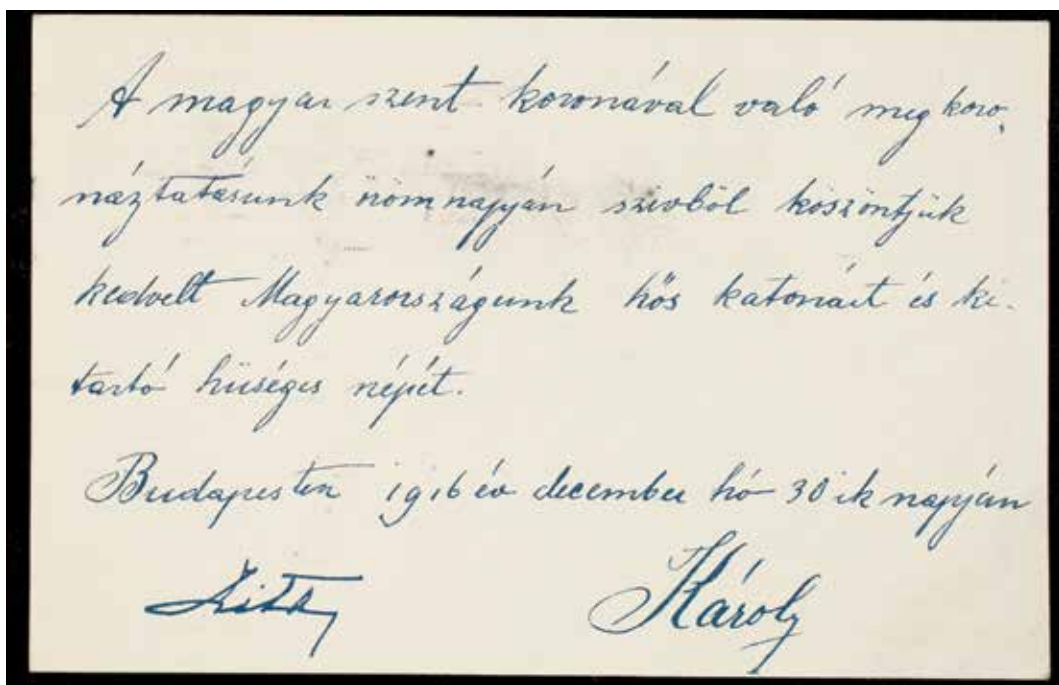 A magyar szent koronával való meg koro-
náztatásunk örömnapján szivből köszöntjük
kedvelt Magyarországunk hős katonáit és ki-
tartó hüséges népét.
Budapesten 1916 év december hó 30 ik napján
Zita Károly